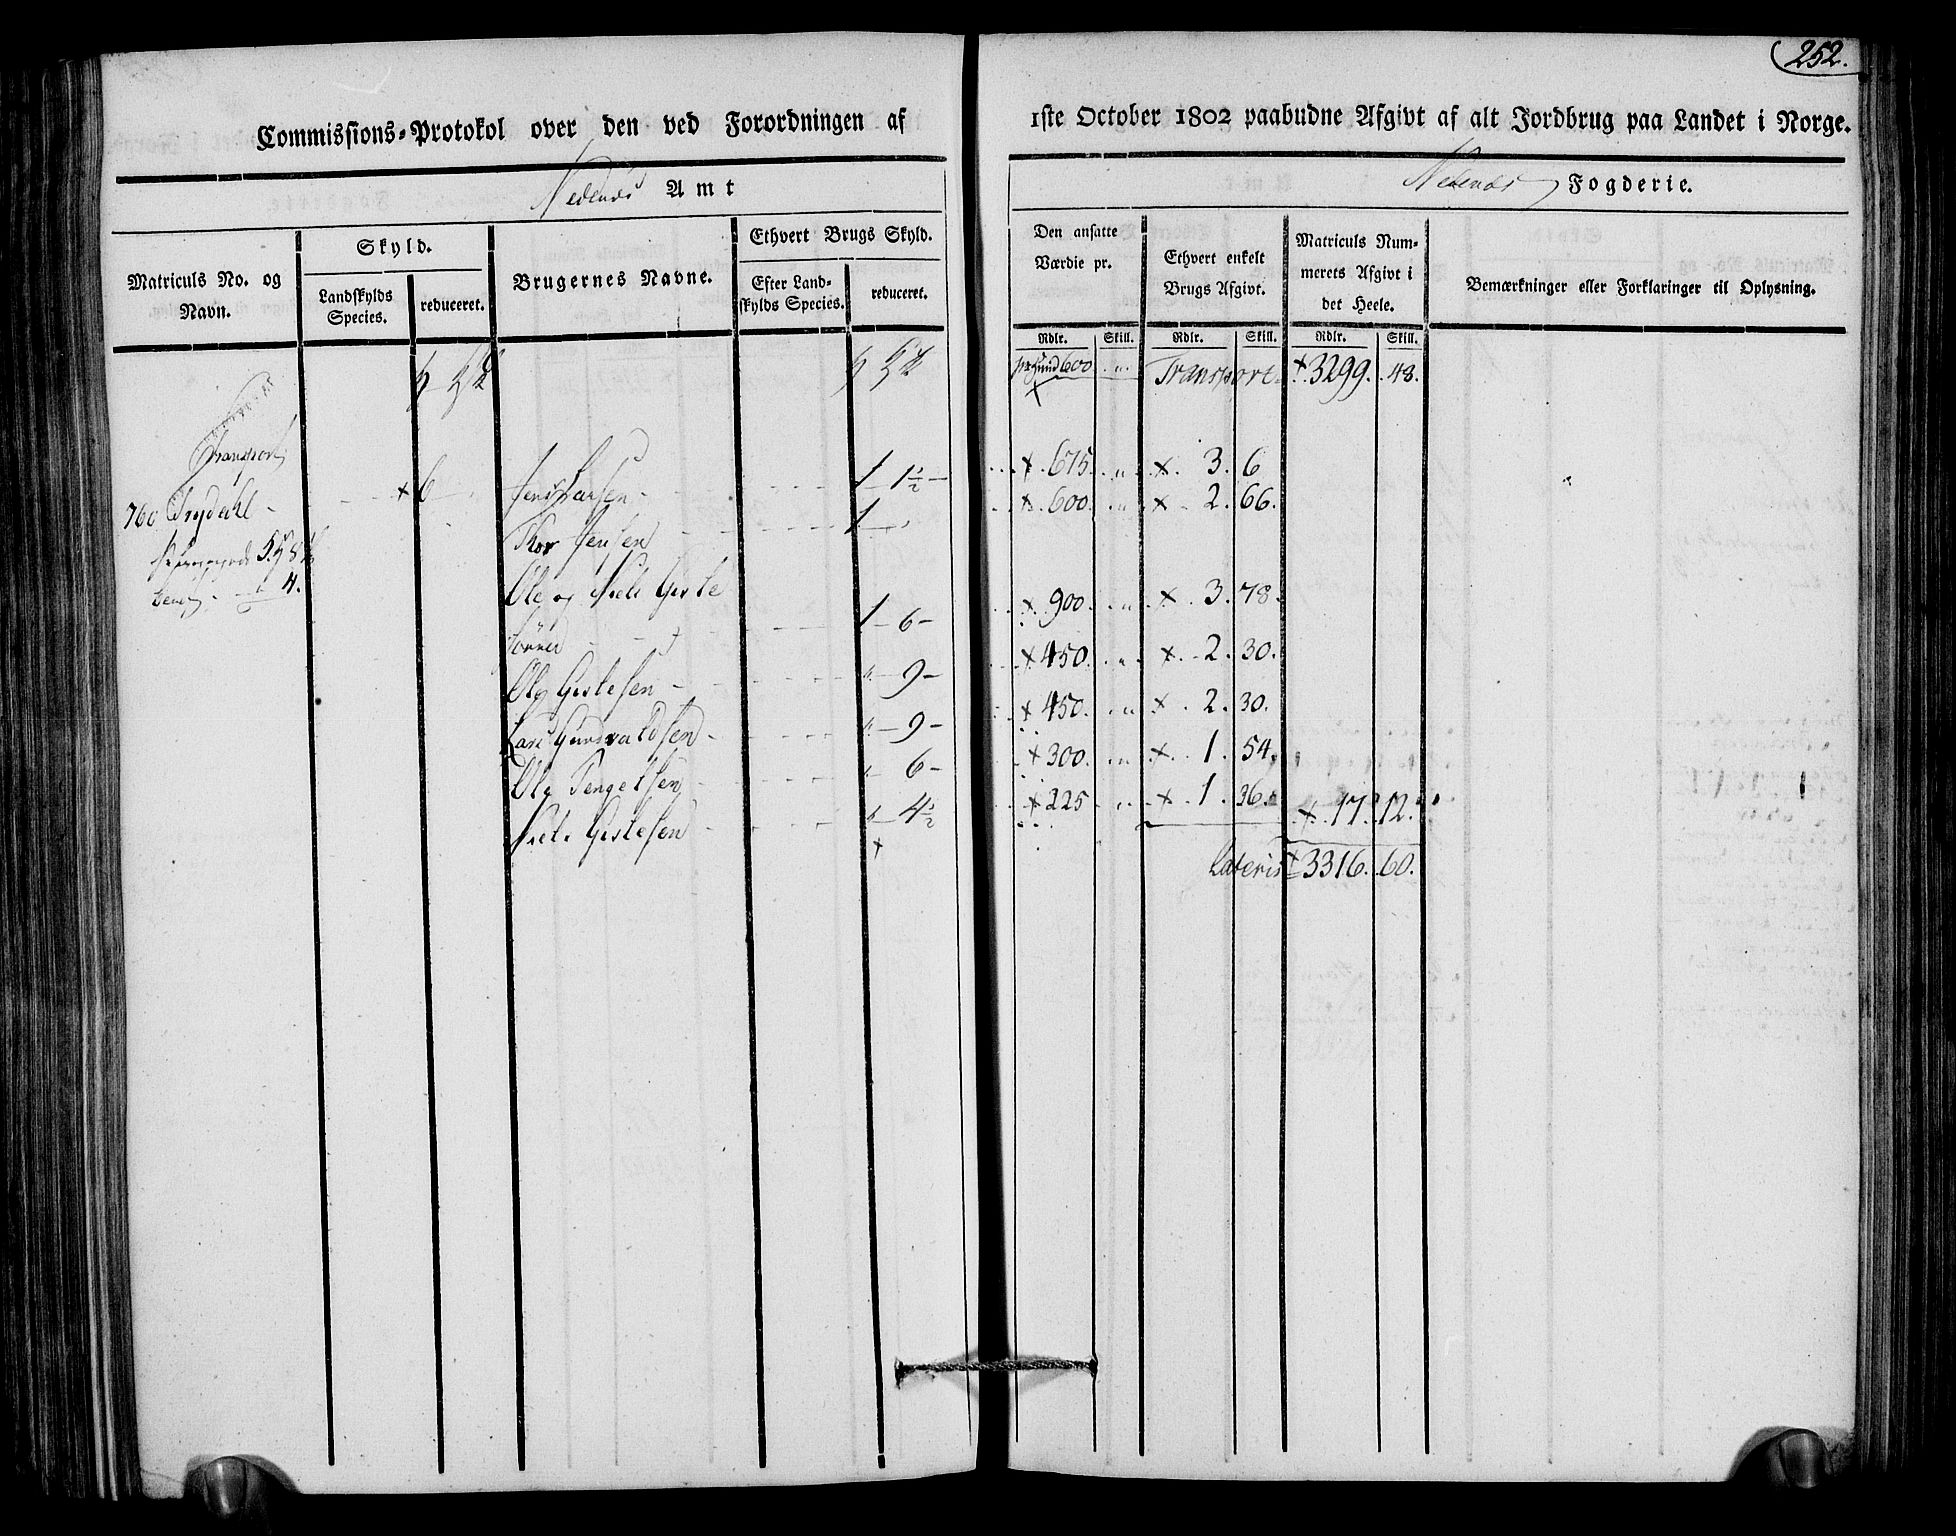 252.
Commissions-Protokol over den ved Forordningen af 1ste October 1802 paabudne Afgivt af alt Jordbrug paa Landet i Norge.
Nedenes Amt
Nedenes Fogderie.
Matriculs No. og Navn.
Skyld.
Landskylds Species.
reduceret.
Brugernes Navne.
Ethvert Brugs Skyld.
Efter Landskylds Species.
reduceret.
Den ansatte Værdie pr.
Rdlr. Skill.
Ethvert enkelt Brugs Afgivt.
Rdlr. Skill.
Matriculs Nummerets Afgivt i det Heele.
Rdlr. Skill.
Bemærkninger eller Forklaringer til Oplysning.
pr Hund 600 Transport 3299. 48.
Transport
760 6 Jens Larsen 1 1½ 675 3. 6
Jensen 1 600 2. 66.
4.
Ole og Niels Gjerte
1 6 900. 3. 78.
Ole 9 450. 2. 30.
Lars Gundvaldsen 9 450. 2. 30.
Ole 6 300. 1. 54.
Niels 4½ 225 1. 36. 17. 12.
Lateris 3316. 60.